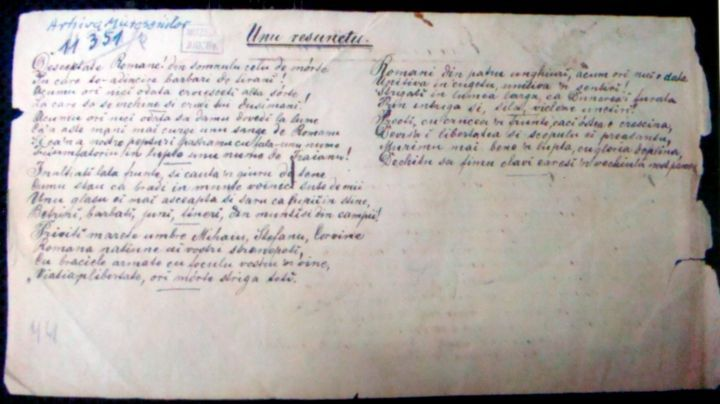 Arhiva Muresenilor
11 351
Unu resunetu.
Desceptate Romane! din somnulu celu de mórte
In care te-adincire barbari de tirani!
Acumu ori nici odata croiesceti alta sórte
La care sa se inchine si crudii tei dusimani!
Acumu ori nici odata sa damu dovedi la lume
Ca'n aste mani mai curge unu sange de Romanu
Si ca'n a nostre pepturi pastramu cu fala-unu nume
Triumfatoriu in lupte unu nume de Traianu!
Inaltiati lata frunte, si cauta'n giuru de tene
Cumu stau ca bradi in munte voinici sute de mii
Unu glasu ei mai ascepta si saru ca lupii in stine,
Betrani, barbati, juni, tineri, din munti si din campii!
Priviti marete umbre Mihaiu, Stefanu, Corvine
Romana natiune ai vostri stranepoti,
Cu braciele armate cu foculu vostru'n vine,
„Viatia'n libertate, ori mórte striga toti.
Romani din patru unghiuri, acum ori nici o data
Uniti-va in cugetu, uniti-va'n sentiri!
Strigati in lumea larga, ca Dunarea-i furata
Prin intriga si, sila, viclene uneltiri
Preoti, cu crucea'n frunte, caci óstea e crescina,
Devisa-i libertatea si scopulu ei preasantu,
Murimu mai bene'n lupta, cu gloria deplina,
Decâtu sa fimu sclavi
441